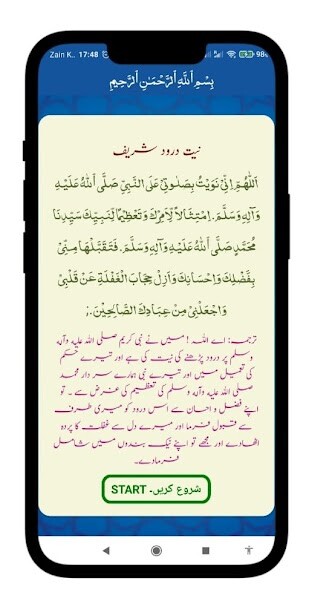 Zain K.. 17:48
بِسْمِ اَللّٰهِ اَلرَّحْمٰنِ اَلرَّحِيْمِ
نیت درود شریف
اَللّٰهُمَّ اِنِّيْ نَوَيْتُ بِصَلٰوتِيْ عَلَى النَّبِيِّ صَلَّى اللّٰهُ عَلَيْهِ
وَآلِهٖ وَسَلَّمَ. اِمْتِثَالًا لِّاَمْرِكَ وَتَعْظِيْمًا لِّنَبِيِّكَ سَيِّدِنَا
مُحَمَّدٍ صَلَّى اللّٰهُ عَلَيْهِ وَآلِهٖ وَسَلَّمَ. فَتَقَبَّلْهَا مِنِّيْ
بِفَضْلِكَ وَاِحْسَانِكَ وَاَزِلْ حِجَابَ الْغَفْلَةِ عَنْ قَلْبِيْ
وَاجْعَلْنِيْ مِنْ عِبَادِكَ الصَّالِحِيْنَ.؛
ترجمہ: اے اللہ ! میں نے نبی کریم صلی الله علیه وآلهٖ
وسلم پر درود پڑھنے کی نیت کی ہے اور تیرے حکم
کی تعمیل میں اور تیرے نبی ہمارے سردار محمد
صلی الله علیه وآلهٖ وسلم کی تعظیم کی غرض سے ۔ تو
اپنے فضل و احسان سے اس درود کو میری طرف
سے قبول فرما اور میرے دل سے غفلت کا پردہ
اٹھادے اور مجھے تو اپنے نیک بندوں میں شامل
فرمادے۔
شروع کریں۔ START